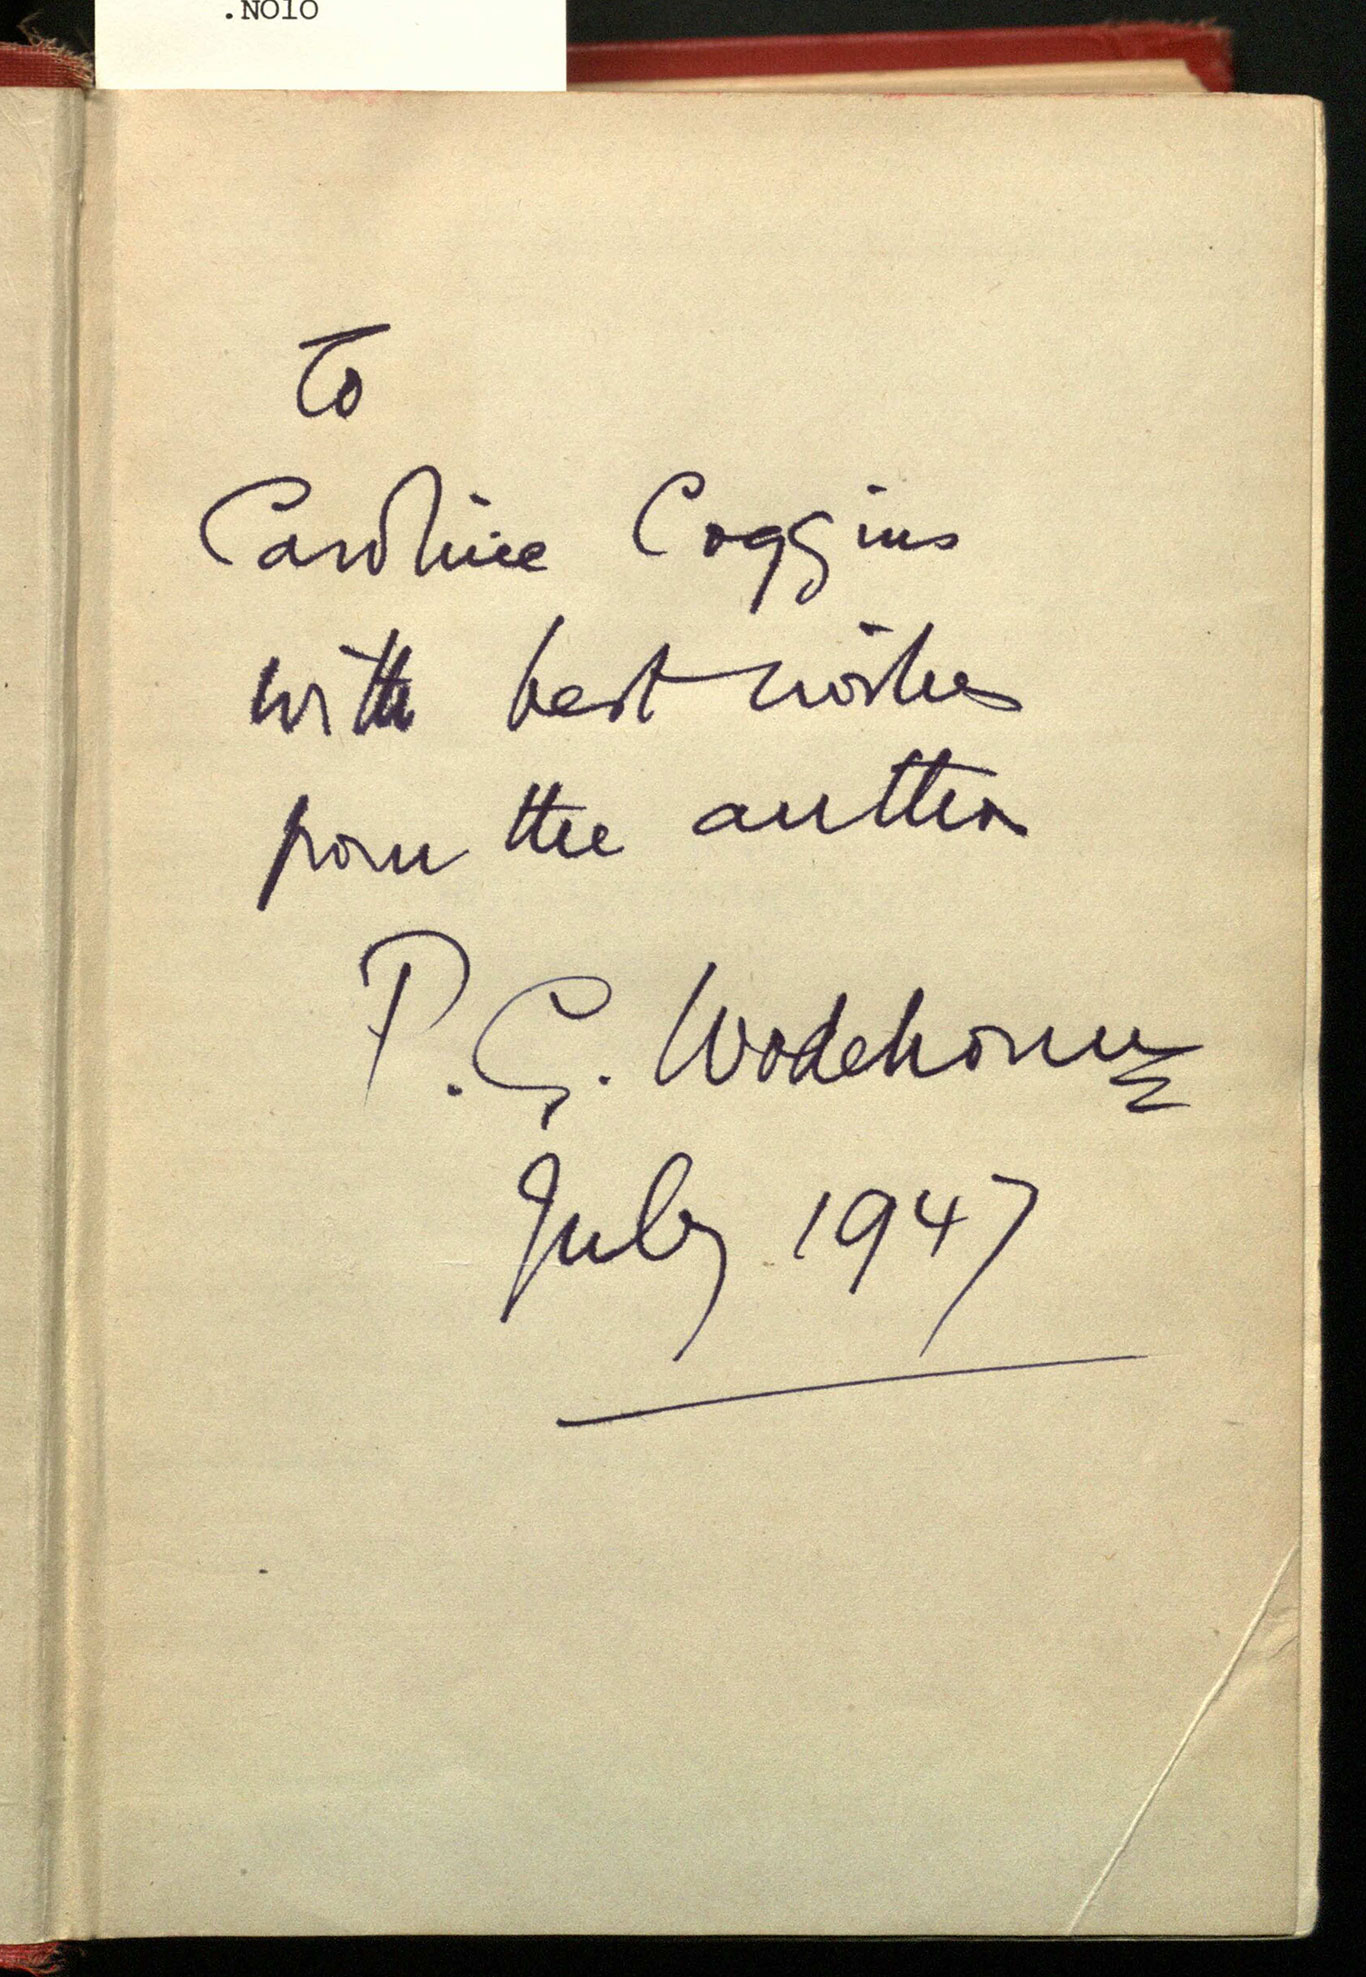 .N01O
To
Caroline Coggins
with best wishes
from the author
P. G. Wodehouse
July 1947